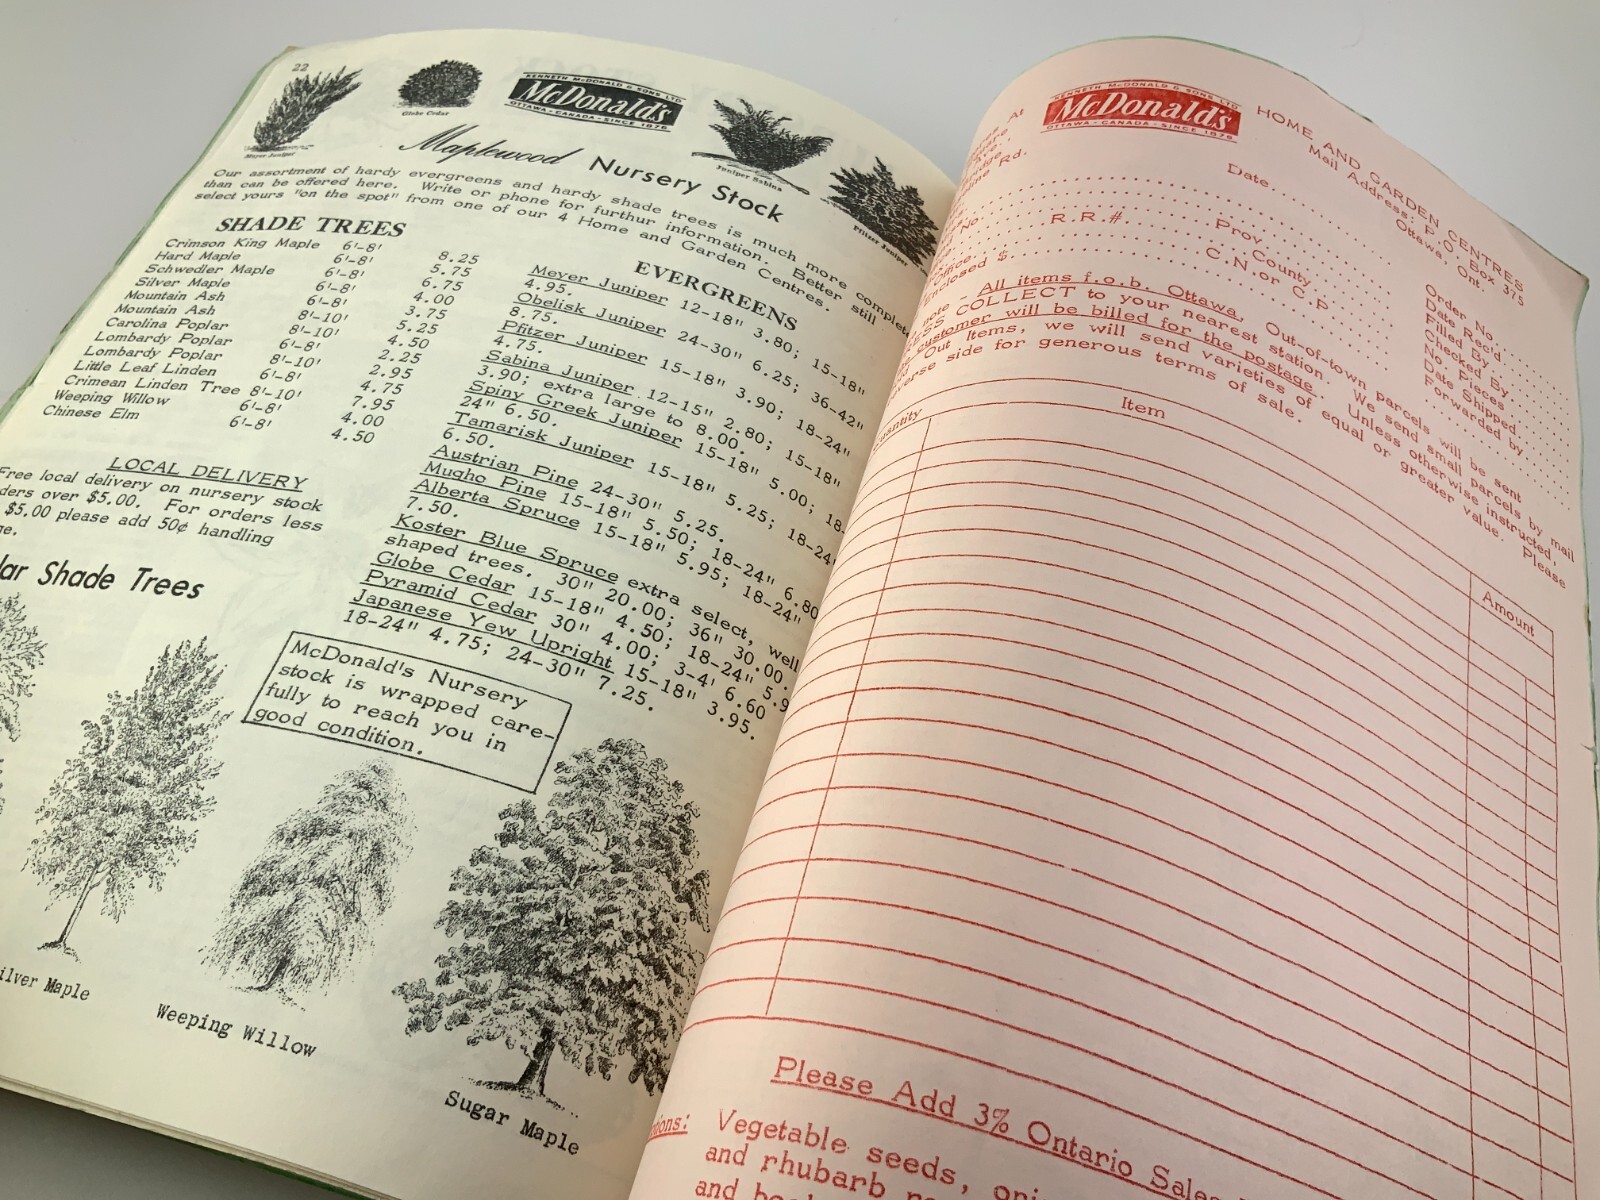 22
Meyer Juniper
Globe Cedar
KENNETH McDONALD & SONS LTD
McDonald's
OTTAWA - CANADA - SINCE 1876
Juniper Sabina
Pfitzer Juniper
Maplewood Nursery Stock
Our assortment of hardy evergreens and hardy shade trees is much more complete
than can be offered here. Write or phone for furthur information. Better still
select yours "on the spot" from one of our 4 Home and Garden Centres.
SHADE TREES
Crimson King Maple 6'-8' 8.25
Hard Maple 6'-8' 5.75
Schwedler Maple 6'-8' 6.75
Silver Maple 6'-8' 4.00
Mountain Ash 6'-8' 3.75
Mountain Ash 8'-10' 5.25
Carolina Poplar 8'-10' 4.50
Lombardy Poplar 6'-8' 2.25
Lombardy Poplar 8'-10' 2.95
Little Leaf Linden 6'-8' 4.75
Crimean Linden Tree 8'-10' 7.95
Weeping Willow 6'-8' 4.00
Chinese Elm 6'-8' 4.50
LOCAL DELIVERY
Free local delivery on nursery stock
over $5.00. For orders less
$5.00 please add 50¢ handling
EVERGREENS
Meyer Juniper 12-18" 3.80; 15-18"
4.95.
Obelisk Juniper 24-30" 6.25; 36-42"
8.75.
Pfitzer Juniper 15-18" 3.90; 18-24"
4.75.
Sabina Juniper 12-15" 2.80; 15-18"
3.90; extra large to 8.00.
Spiny Greek Juniper 15-18" 5.00; 18-
24" 6.50.
Tamarisk Juniper 15-18" 5.25; 18-24"
6.50.
Austrian Pine 24-30" 5.25.
Mugho Pine 15-18" 5.50; 18-24" 6.80
Alberta Spruce 15-18" 5.95; 18-24"
7.50.
Koster Blue Spruce extra select, well
shaped trees. 30" 20.00; 36" 30.00.
Globe Cedar 15-18" 4.50; 18-24" 5.9
Pyramid Cedar 30" 4.00; 3-4' 6.60
Japanese Yew Upright 15-18" 3.95.
18-24" 4.75; 24-30" 7.25.
Shade Trees
McDonald's Nursery
stock is wrapped care-
fully to reach you in
good condition.
Silver Maple
Weeping Willow
Sugar Maple
KENNETH McDONALD & SONS LTD
McDonald's
OTTAWA - CANADA - SINCE 1876
HOME AND GARDEN CENTRES
Mail Address: P.O. Box 375
Ottawa, Ont.
At
Rd.
Date
No.
R.R.#. Prov.
County
Office C.N. or C.P.
Enclosed $
Order No.
Date Rec'd
Filled By
Checked By
No. Pieces
Date Shipped
Forwarded by
note - All items f.o.b. Ottawa, Out-of-town parcels will be sent
COLLECT to your nearest station. We send small parcels by mail
customer will be billed for the postage. Unless otherwise instructed,
Out Items, we will send varieties of equal or greater value. Please
side for generous terms of sale.
Quantity Item Amount
Please Add 3% Ontario Sales
Vegetable seeds,
and rhubarb
and